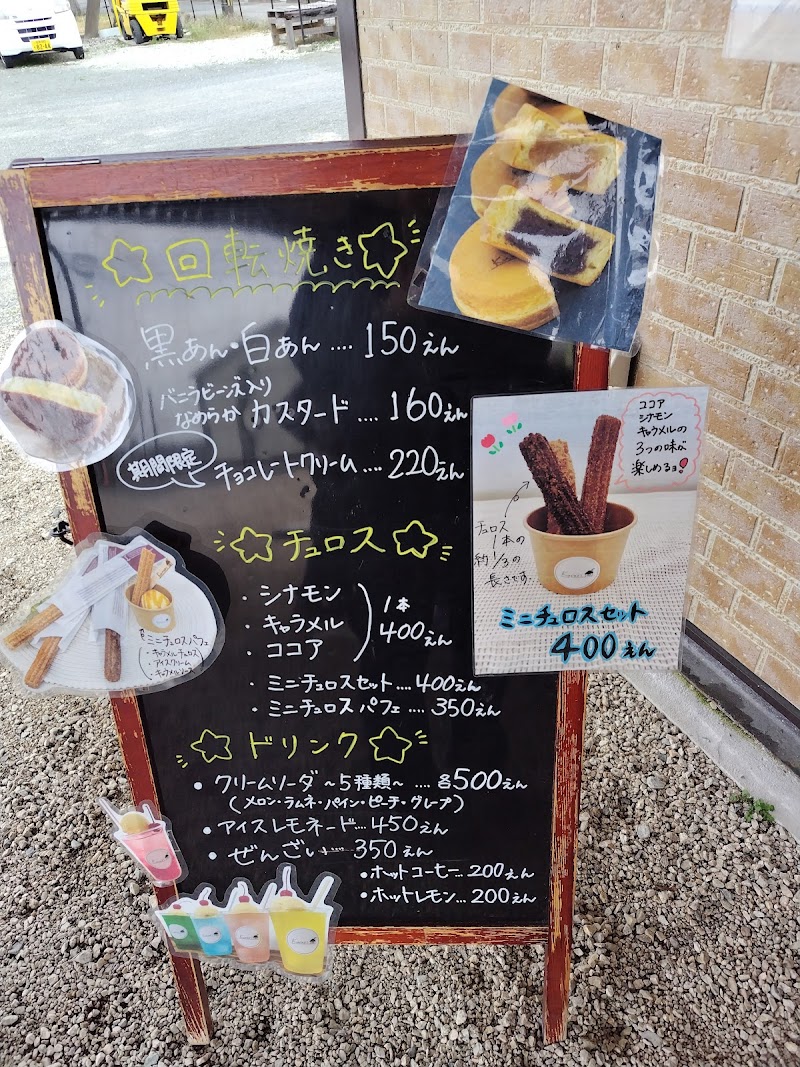 回転焼き
黒あん・白あん .... 150えん
バニラビーンズ入り
なめらか カスタード .... 160えん
期間限定 チョコレートクリーム .... 220えん
チュロス
・シナモン
・キャラメル
・ココア
1本
400えん
・ミニチュロスセット .... 400えん
・ミニチュロスパフェ .... 350えん
ドリンク
・クリームソーダ ~5種類~ .... 各500えん
(メロン・ラムネ・パイン・ピーチ・グレープ)
・アイスレモネード .... 450えん
・ぜんざい .... 350えん
・ホットコーヒー ... 200えん
・ホットレモン ... 200えん
ココア
シナモン
キャラメルの
3つの味が
楽しめるョ!
チュロス
1本の
約1/3の
長さです。
ミニチュロスセット
400えん
ミニチュロスパフェ
・キャラメルチュロス
・アイスクリーム
・キャラメルソース